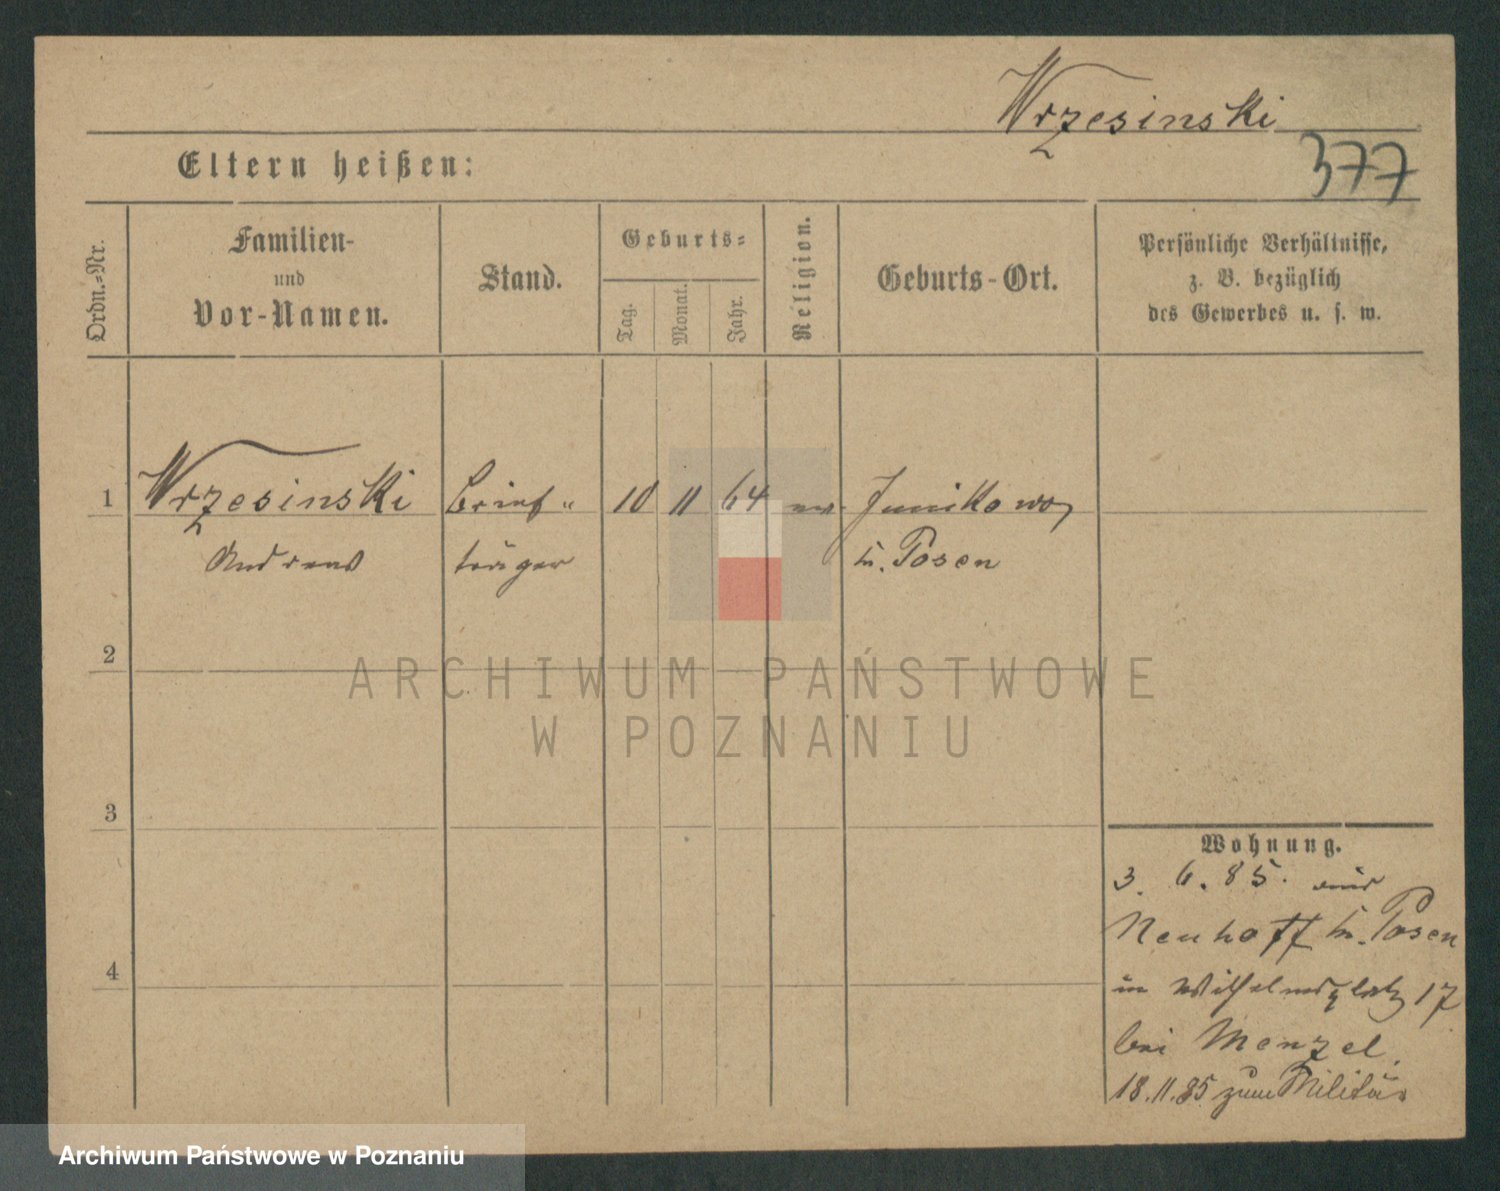 Wrzesinski
377
Eltern heißen:
Ordn.-Nr.
Familien-
und
Vor-Namen.
Stand.
Geburts-
Tag.
Monat.
Jahr.
Religion.
Geburts-Ort.
Persönliche Verhältnisse,
z. B. bezüglich
des Gewerbes u. s. w.
1 Wrzesinski Brief- 10 11 64 Junikowo
Andreas träger b. Posen
2
3
4
Wohnung.
3. 6. 85. aus
Neuhoff b. Posen
in Wilhelmsplatz 17
bei Menzel.
18.11.85 zum Militär
ARCHIWUM PAŃSTWOWE
W POZNANIU
Archiwum Państwowe w Poznaniu